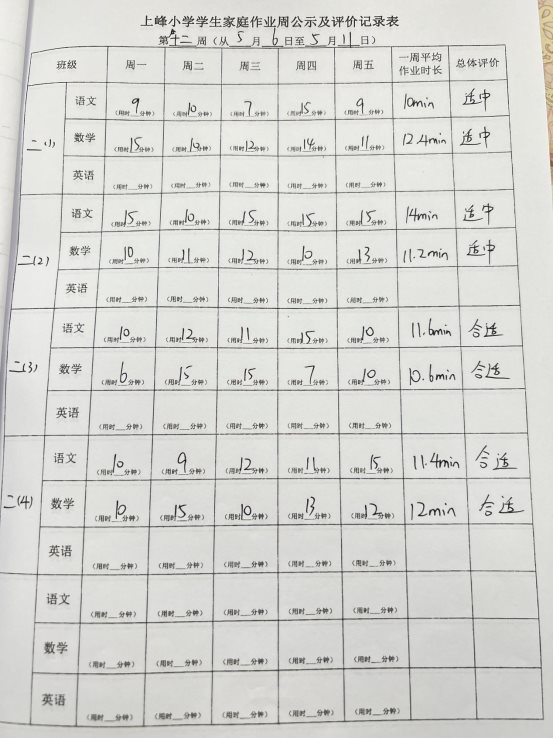 上峰小学学生家庭作业周公示及评价记录表
第十二周（从5月6日至5月11日）
班级 周一 周二 周三 周四 周五 一周平均作业时长 总体评价
二(1) 语文 （用时9分钟） （用时10分钟） （用时7分钟） （用时15分钟） （用时9分钟） 10min 适中
数学 （用时15分钟） （用时10分钟） （用时12分钟） （用时14分钟） （用时11分钟） 12.4min 适中
英语 （用时__分钟） （用时__分钟） （用时__分钟） （用时__分钟） （用时__分钟）
二(2) 语文 （用时15分钟） （用时10分钟） （用时15分钟） （用时15分钟） （用时15分钟） 14min 适中
数学 （用时10分钟） （用时11分钟） （用时12分钟） （用时10分钟） （用时13分钟） 11.2min 适中
英语 （用时__分钟） （用时__分钟） （用时__分钟） （用时__分钟） （用时__分钟）
二(3) 语文 （用时10分钟） （用时12分钟） （用时11分钟） （用时15分钟） （用时10分钟） 11.6min 合适
数学 （用时6分钟） （用时15分钟） （用时15分钟） （用时7分钟） （用时10分钟） 10.6min 合适
英语 （用时__分钟） （用时__分钟） （用时__分钟） （用时__分钟） （用时__分钟）
二(4) 语文 （用时10分钟） （用时9分钟） （用时12分钟） （用时11分钟） （用时15分钟） 11.4min 合适
数学 （用时10分钟） （用时15分钟） （用时10分钟） （用时13分钟） （用时12分钟） 12min 合适
英语 （用时__分钟） （用时__分钟） （用时__分钟） （用时__分钟） （用时__分钟）
语文 （用时__分钟） （用时__分钟） （用时__分钟） （用时__分钟） （用时__分钟）
数学 （用时__分钟） （用时__分钟） （用时__分钟） （用时__分钟） （用时__分钟）
英语 （用时__分钟） （用时__分钟） （用时__分钟） （用时__分钟） （用时__分钟）